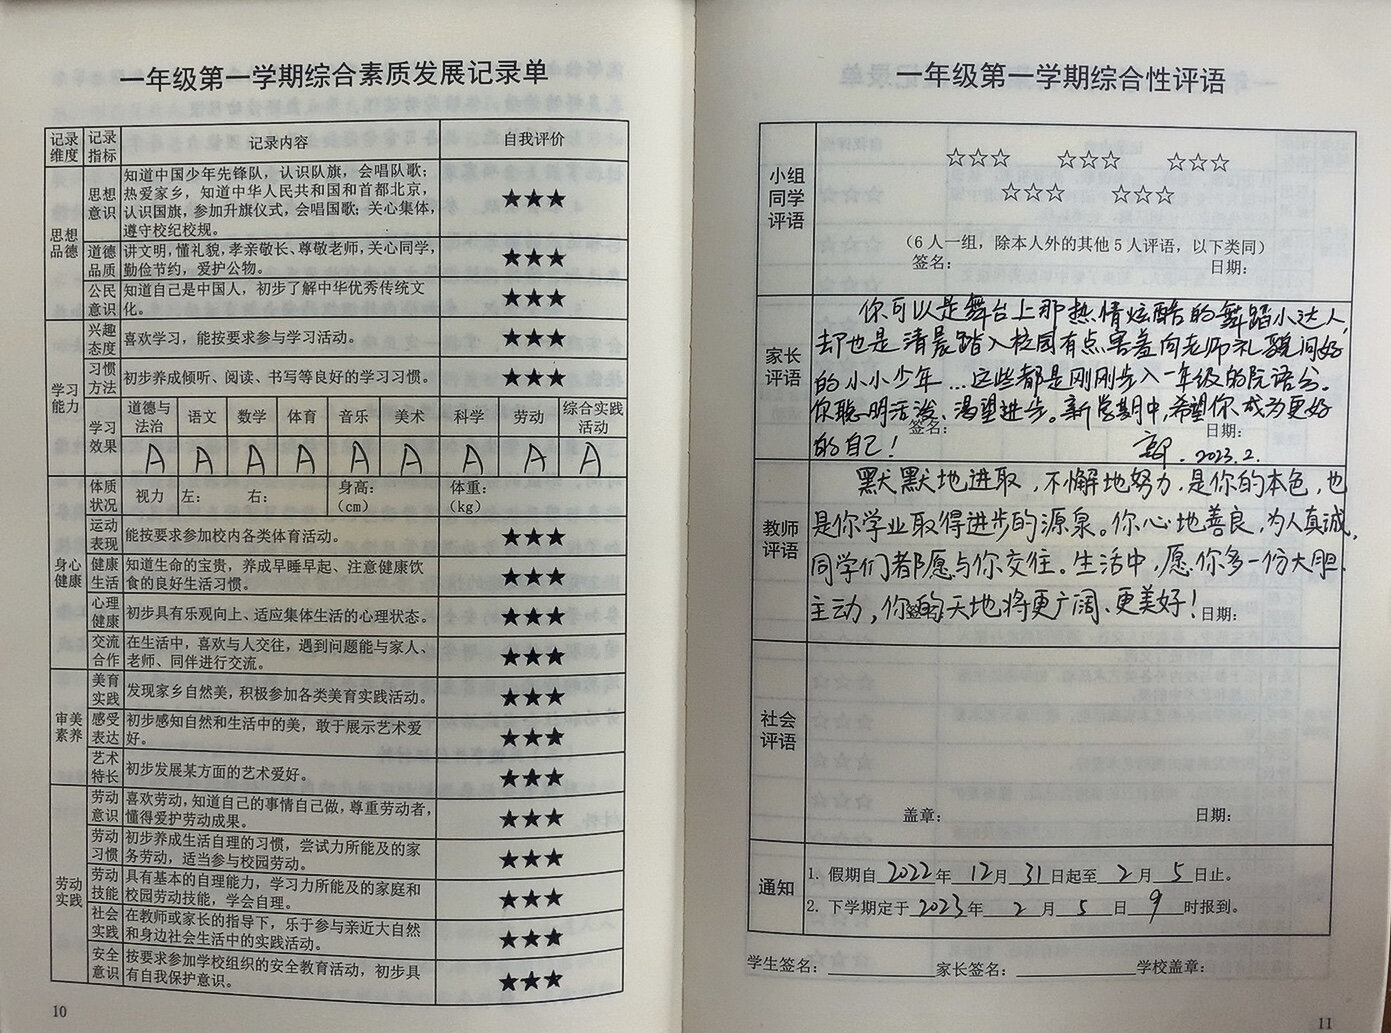 一年级第一学期综合素质发展记录单
记录维度 记录指标 记录内容 自我评价
思想品德
思想意识 知道中国少年先锋队，认识队旗，会唱队歌；
热爱家乡，知道中华人民共和国和首都北京，
认识国旗，参加升旗仪式，会唱国歌；关心集体，
遵守校纪校规。 ★★★
道德品质 讲文明，懂礼貌，孝亲敬长、尊敬老师，关心同学，
勤俭节约，爱护公物。 ★★★
公民意识 知道自己是中国人，初步了解中华优秀传统文
化。 ★★★
学习能力
兴趣态度 喜欢学习，能按要求参与学习活动。 ★★★
习惯方法 初步养成倾听、阅读、书写等良好的学习习惯。 ★★★
学习效果 道德与法治 语文 数学 体育 音乐 美术 科学 劳动 综合实践活动
A A A A A A A A A
身心健康
体质状况 视力 左： 右： 身高：（cm） 体重：（kg）
运动表现 能按要求参加校内各类体育活动。 ★★★
健康生活 知道生命的宝贵，养成早睡早起、注意健康饮
食的良好生活习惯。 ★★★
心理健康 初步具有乐观向上、适应集体生活的心理状态。 ★★★
交流合作 在生活中，喜欢与人交往，遇到问题能与家人、
老师、同伴进行交流。 ★★★
审美素养
美育实践 发现家乡自然美，积极参加各类美育实践活动。 ★★★
感受表达 初步感知自然和生活中的美，敢于展示艺术爱
好。 ★★★
艺术特长 初步发展某方面的艺术爱好。 ★★★
劳动实践
劳动意识 喜欢劳动，知道自己的事情自己做，尊重劳动者，
懂得爱护劳动成果。 ★★★
劳动习惯 初步养成生活自理的习惯，尝试力所能及的家
务劳动，适当参与校园劳动。 ★★★
劳动技能 具有基本的自理能力，学习力所能及的家庭和
校园劳动技能，学会自理。 ★★★
社会实践 在教师或家长的指导下，乐于参与亲近大自然
和身边社会生活中的实践活动。 ★★★
安全意识 按要求参加学校组织的安全教育活动，初步具
有自我保护意识。 ★★★
10
一年级第一学期综合性评语
小组同学评语
☆☆☆ ☆☆☆ ☆☆☆
☆☆☆ ☆☆☆
（6人一组，除本人外的其他5人评语，以下类同）
签名： 日期：
家长评语
你可以是舞台上那热情炫酷的舞蹈小达人，
却也是清晨踏入校园有点害羞向老师礼貌问好
的小小少年…这些都是刚刚步入一年级的阮语兮。
你聪明活泼、渴望进步。新学期中，希望你成为更好
签名： 日期：
的自己！ 郭．2023.2.
教师评语
默默地进取，不懈地努力，是你的本色，也
是你学业取得进步的源泉。你心地善良，为人真诚，
同学们都愿与你交往。生活中，愿你多一份大胆、
主动，你的天地将更广阔、更美好！ 日期：
社会评语
盖章： 日期：
通知
1. 假期自2022年12月31日起至2月5日止。
2. 下学期定于2023年2月5日9时报到。
学生签名： 家长签名： 学校盖章：
11